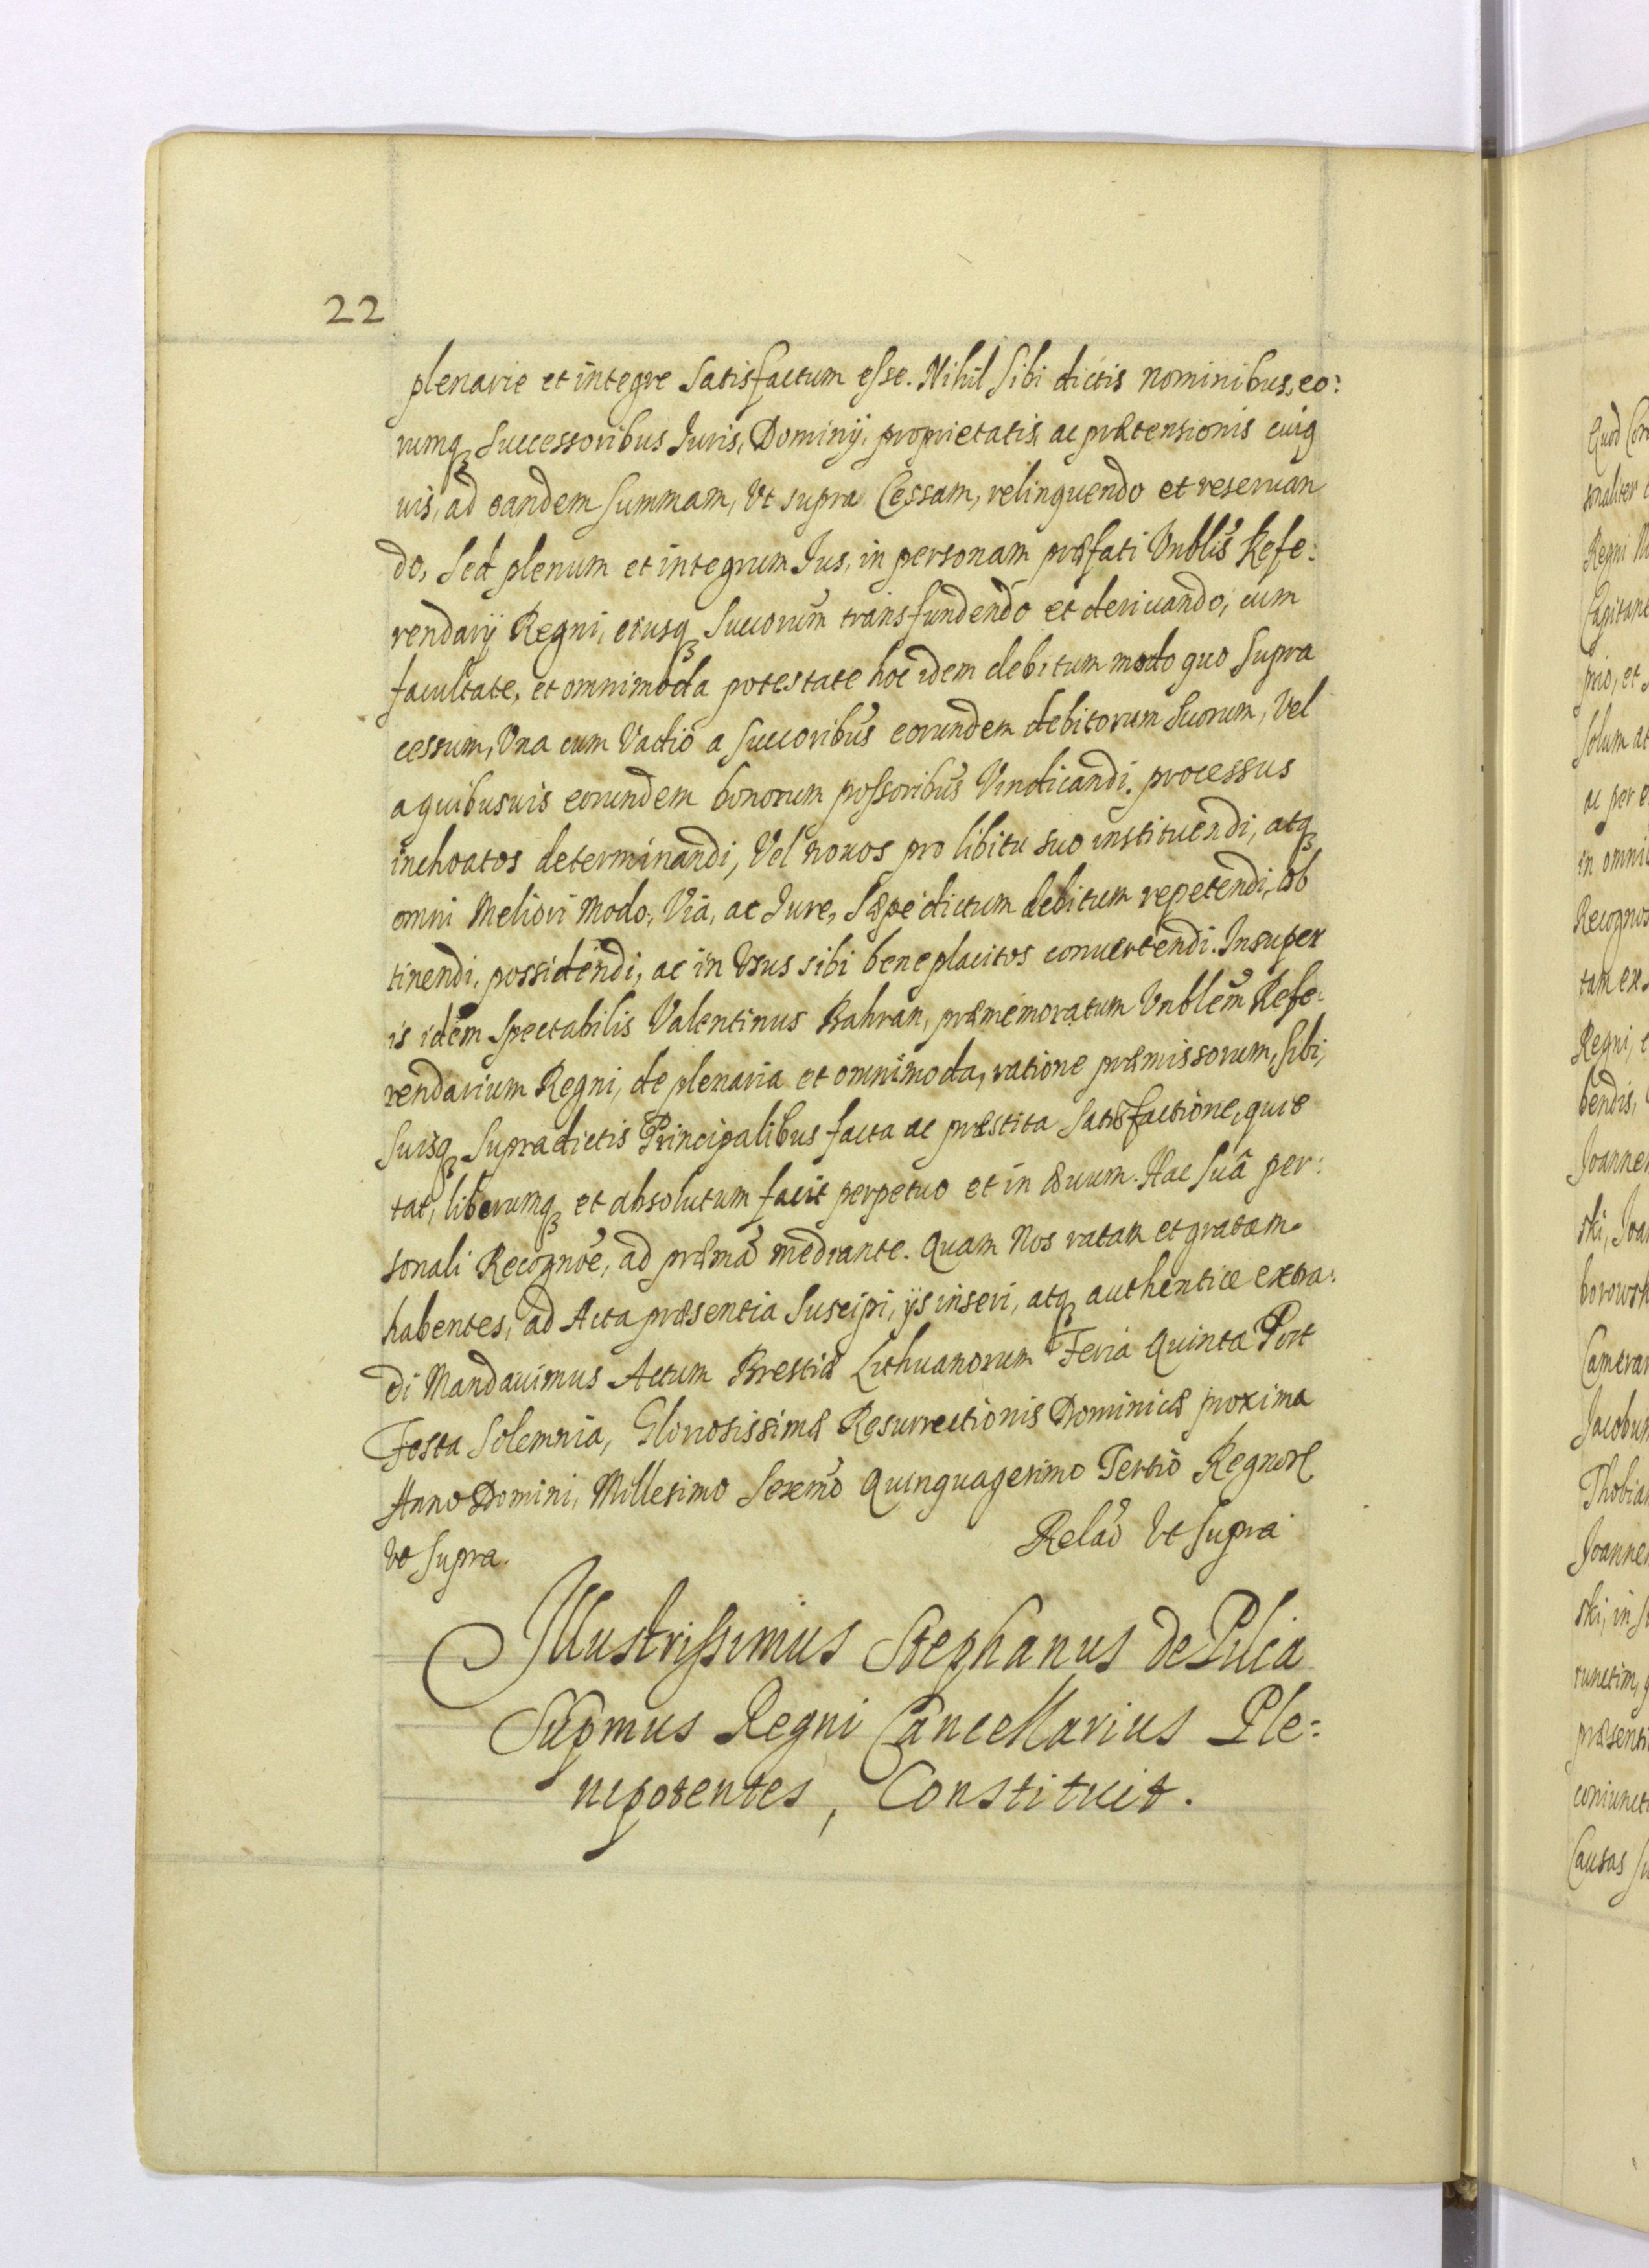 22
plenarie et integre Satisfactum esse. Nihil Sibi dictis nominibus, eo:
rumq3 Successoribus Juris, Dominij, proprietatis, ac prætensionis cuiq
uis, ad eandem Summam, Vt supra Cessam, relinquendo et reseruan
do, Sed plenum et integrum Jus, in personam præfati Vnblis Refe:
rendarij Regni, eiusq3 Succorum transfundendo et deriuando, cum
facultate, et omnimoda potestate hoc idem debitum modo quo Supra
cessum, Vna cum Vadio a Succoribus eorundem debitorum Suorum, Vel
a quibusuis eorundem bonorum possoribus Vindicandi, processus
inchoatos determinandi, Vel nouos pro libitu suo instituendi, atq3
omni Meliori Modo, Via, ac Jure, Sæpe dictum debitum repetendi, ob
tinendi, possidendi, ac in Vsus sibi bene placitos conuertendi. Insuper
is idem Spectabilis Valentinus Bahran, præmemoratum Vnblem Refe:
rendarium Regni, de plenaria et omnimoda, ratione præmissorum, Sibi,
Suisq3 Supradictis Principalibus facta ac præstita Satisfactione, quie
tat, liberumq3 et absolutum facit perpetuo et in æuum. Hac Suâ per:
sonali Recognoe, ad præma mediante. Quam Nos ratam et gratam
habentes, ad Acta præsentia Suscipi, ijs inseri, atq3 authentice extra:
di Mandauimus Actum Brestiæ Lithuanorum Feria Quinta Post
Festa Solemnia, Gloriosissimæ Resurrectionis Dominicæ proxima
Anno Domini, Millesimo Sexmo Quinquagesimo Tertio Regnor
Vt Supra. Relao Vt Supra
Illustrissimus Stephanus de Pilca
Supmus Regni Cancellarius Ple:
nipotentes, Constituit.